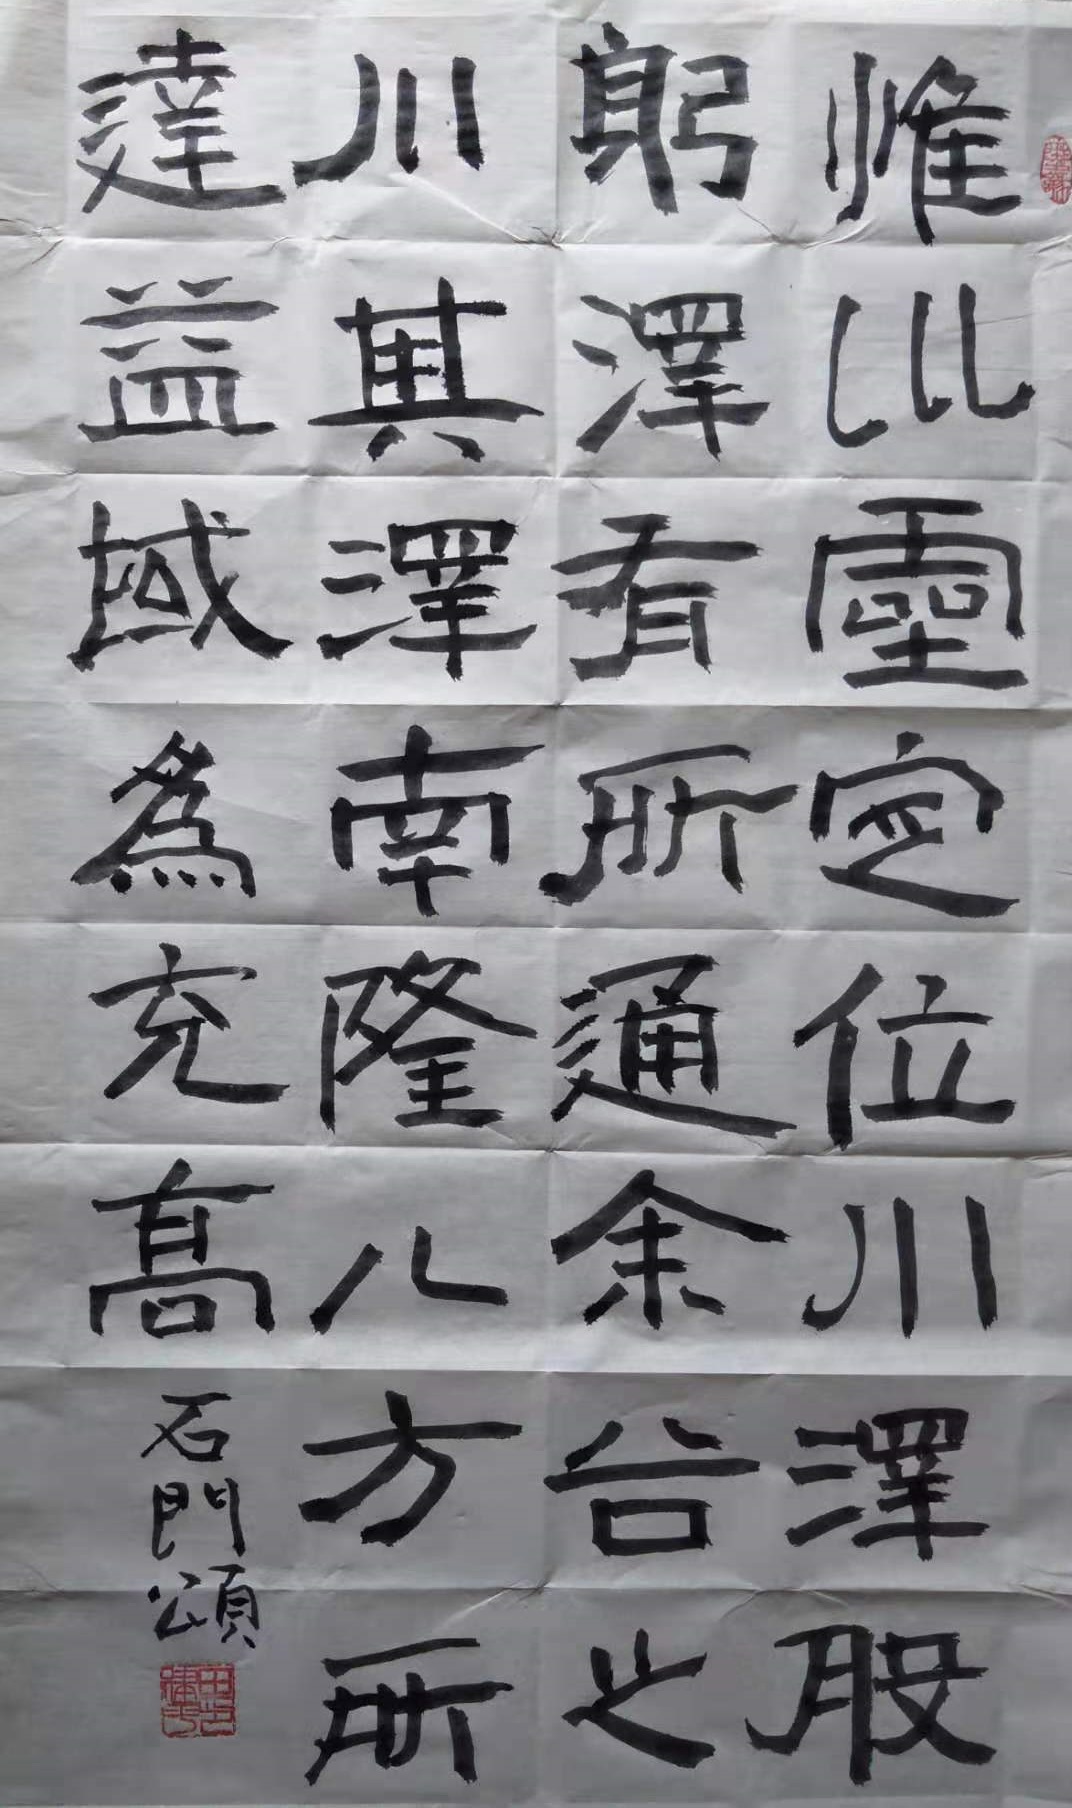 惟巛靈定位川澤股
躬澤有所通余谷之
川其澤南隆八方所
達益域為充高
石門頌